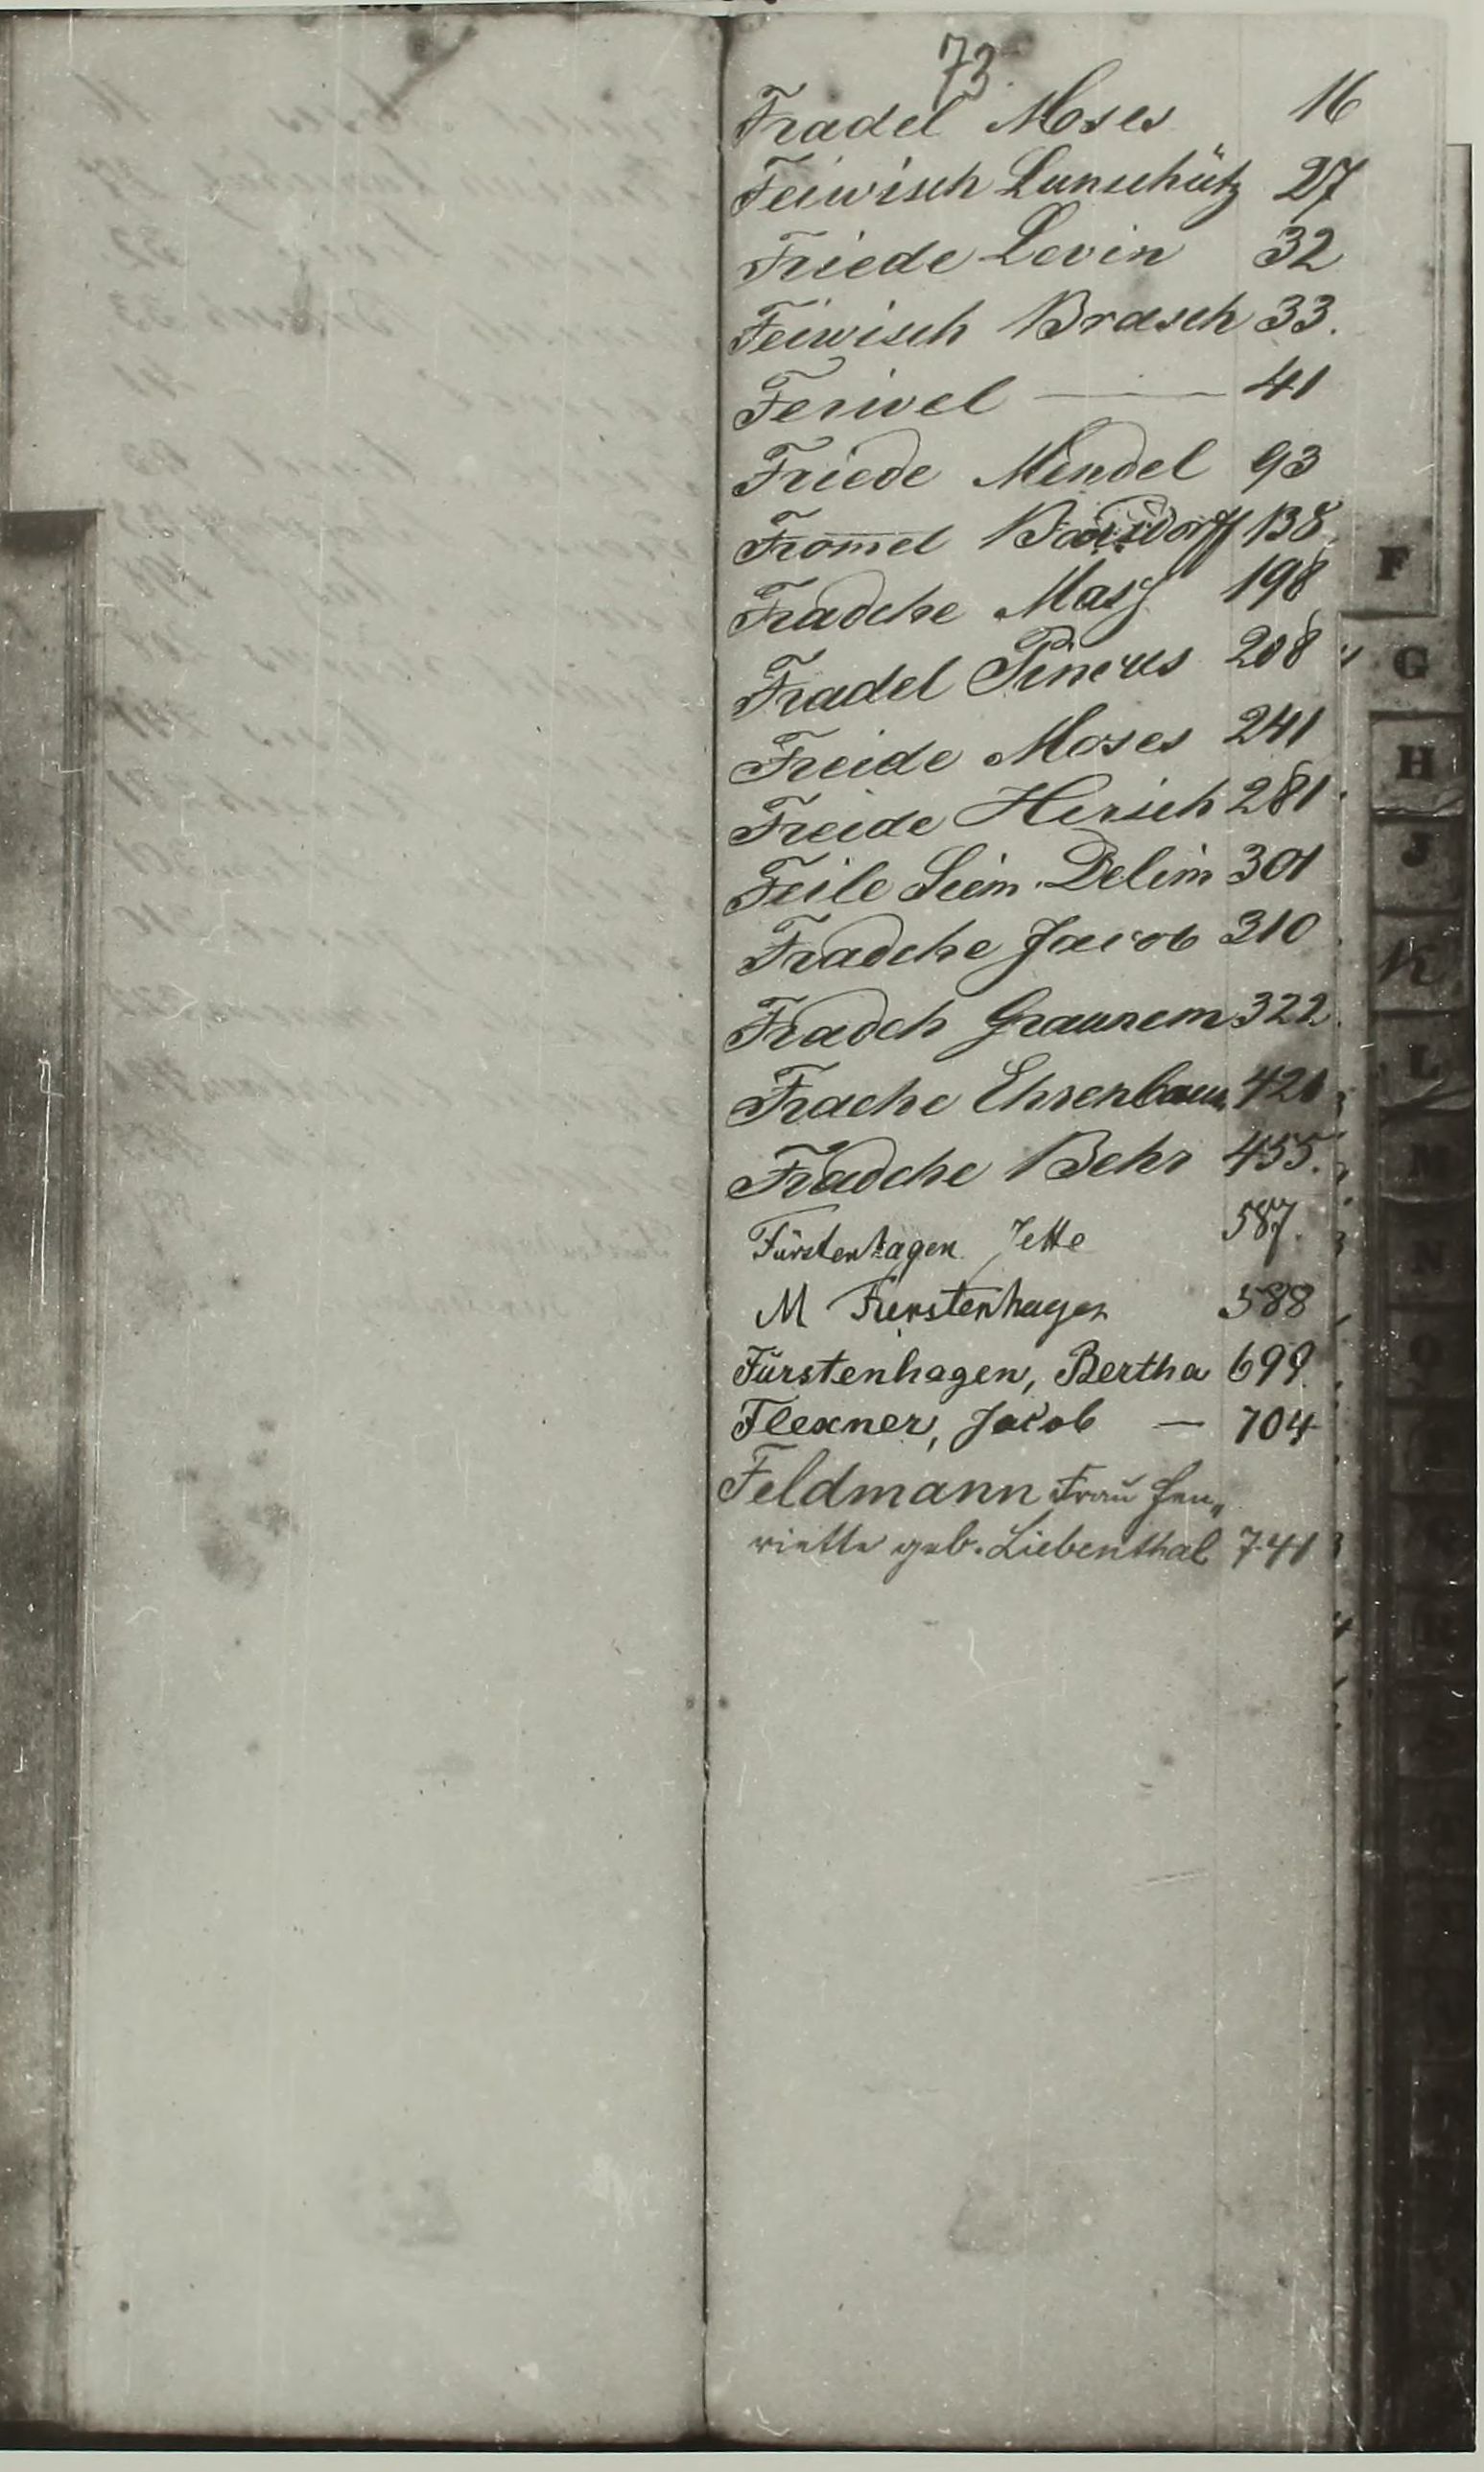 73
Fradel Moses 16
Feiwisch Lunschütz 27
Friede Levin 32
Feiwisch Brasch 33.
Feriwel — 41
Friede Mendel 93
Fromel 138
Fradche 198
Fradel Pincus 208
Freide Moses 241
Freide Hersch 281
Feile Siem. Delim 301
Fradche Jacob 310
Fradch Graurem 322
Frache Ehrenbaum 421
Fradche Behr 455.
Fürstenhagen Jette 587.
M Fuerstenhagen 588
Fürstenhagen, Bertha 699
Flexner, Jacob — 704
Feldmann Frau Hen„
riette geb. Liebenthal 741
F
G
H
J
K
L
M
N
O